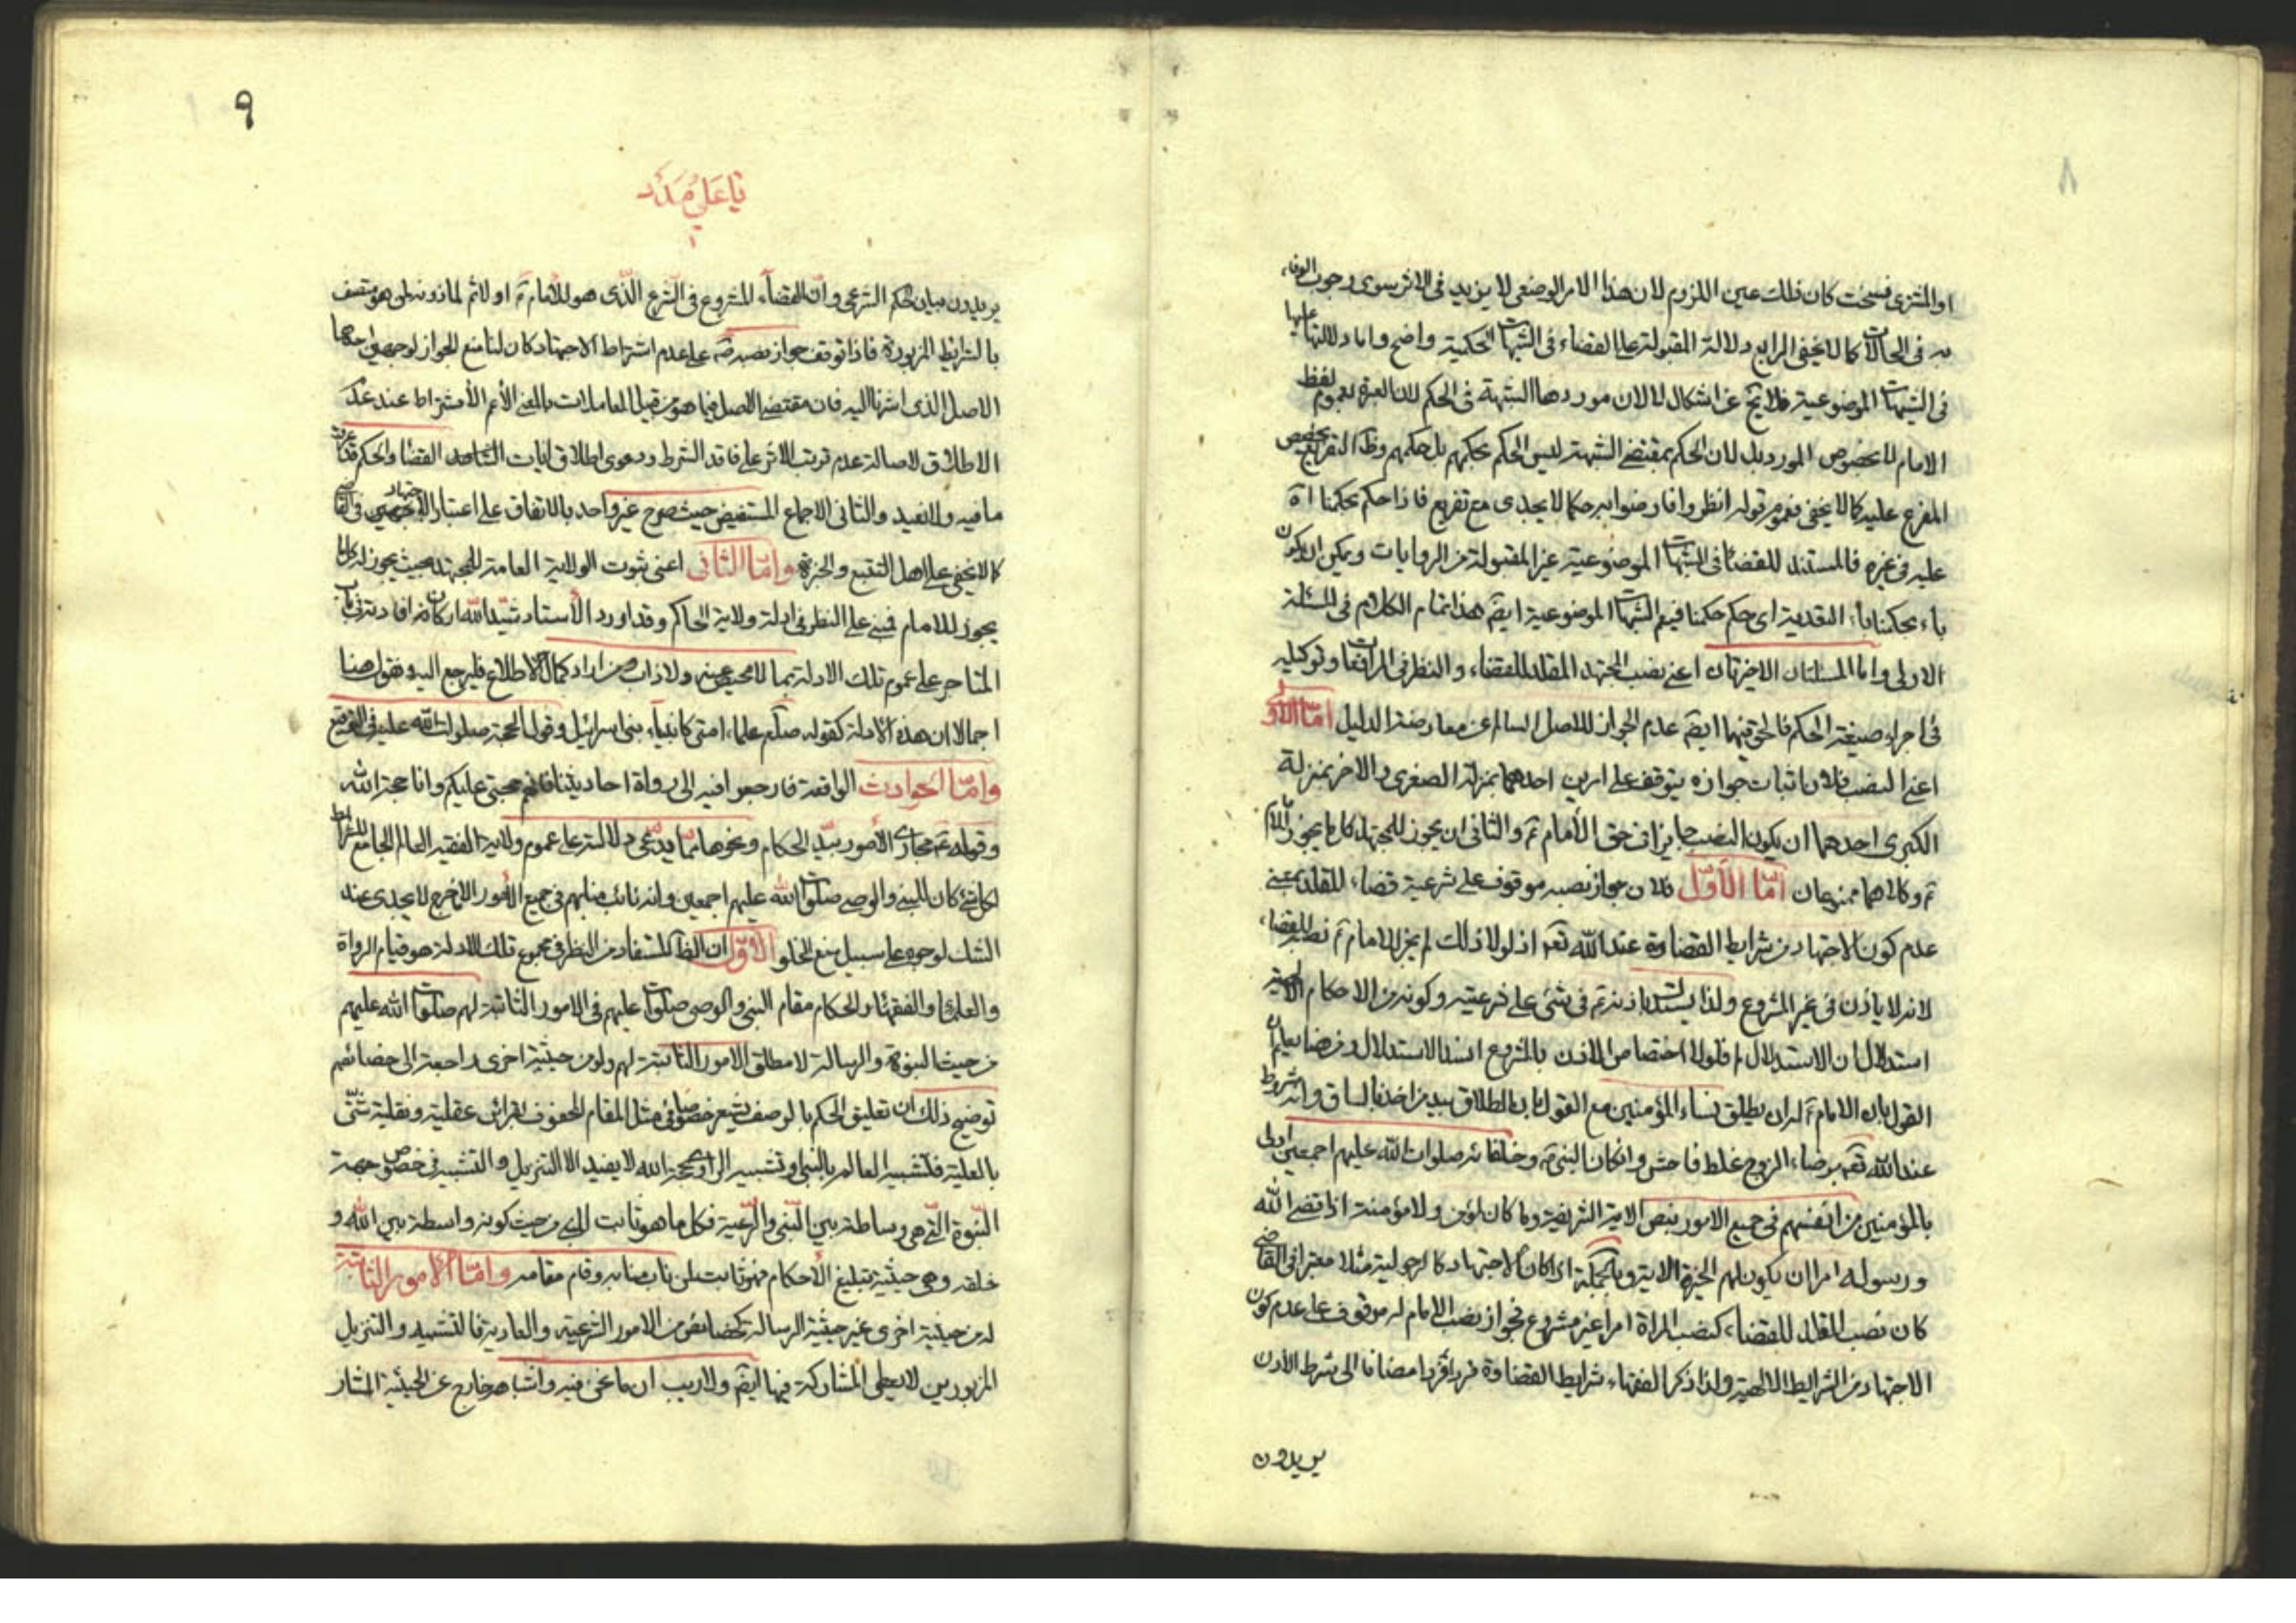 ٨
او المشتري فسخت كان ذلك عين اللزوم لان هذا الامر الوضعي لا يزيد في الاثر سوى وجوب الوفاء
به في الحالات كما لا يخفى الرابع دلالة المقبولة على القضاء في الشبهات الحكمية واضح واما دلالتها عليها
في الشبهات الموضوعية فلا تخ عن اشكال لا لان موردها الشبهة في الحكم لان العبرة بعموم لفظ
الامام لا بخصوص المورد بل لان الحكم بمقتضى الشبهة ليس الحكم بحكمهم بل حكمهم وظ التفريع يخصص
المفرع عليه كما لا يخفى فعموم قوله انظروا فارضوا به حكما لا يجدى مع تفريع فاذا حكم بحكمنا اه
عليه في غيره فالمستند للقضاء في الشبهات الموضوعية غير المقبولة من الروايات ويمكن ان يكون
باء بحكمنا باء التعدية اى حكم حكمنا فيعم الشبهات الموضوعية ايضا هذا تمام الكلام في المسئلة
الاولى واما المسئلتان الاخيرتان اعنى نصب المجتهد المقلد للقضاء والنظر في المرافعات وتوكيله
في اجراء صيغة الحكم فالحق فيهما ايضا عدم الجواز للاصل السالم عن معارضة الدليل اما الاول
اعنى النصب فلان اثبات جوازه يتوقف على امرين احدهما بمنزلة الصغرى والاخر بمنزلة
الكبرى احدهما ان يكون النصب جايزا في حق الأمام ع والثانى ان يجوز للمجتهد كل ما يجوز للامام
ع وكلاهما ممنوعان امّا الأوّل فلان جواز نصبه موقوف على شرعية قضاء للمقلد بمعنى
عدم كون الاجتهاد من شرايط القضاوة عند الله تعه اذ لولا ذلك لم يجز للامام ع نصبه للقضاء
لانه لا يأذن في غير المشروع ولذا يستدل باذنه ع في شئ على شرعيته وكونه من الاحكام الالهية
استدلال ان الاستدلال فلولا اختصاص الاذن بالمشروع انسد الاستدلال ومن هنا يعلم ان
القول بان الامام ع له ان يطلق نساء المؤمنين مع القول بان الطلاق بيد من اخذ بالساق وانه مشروط
عند الله تعه برضاء الزوج غلط فاحش وان كان النبى ص وخلفائه صلوات الله عليهم اجمعين اولى
بالمؤمنين من انفسهم في جميع الامور بنص الاية الشريفة وما كان لمؤمن ولا مؤمنة اذا قضى الله
ورسوله امرا ان يكون لهم الخيرة الاية وبالجملة اذا كان الاجتهاد كالرجولية مثلا معتبرا في القاضى
كان نصب المقلد للقضاء كنصب المراة امرا غير مشروع فجواز نصب الامام له موقوف على عدم كون
الاجتهاد من الشرايط الالهية ولذا ذكر الفقهاء شرايط القضاوة فردا فردا مضافا الى شرط الاذن
يريدون
٩
يا علي مدد
يريدون بيان حكم الشرعى وان القضاء المشروع في الشرع الّذى هو للأمام ع او لا ثم لمأذونه لمن هو متصف
بالشرايط المزبورة فاذا توقف جواز نصبه ع على عدم اشتراط الاجتهاد كان لنا منع الجواز لوجهين احدهما
الاصل الذى اشرنا اليه فان مقتضى الاصل فيما هو من قبيل المعاملات بالمعنى الأعم الأشتراط عند عدم
الاطلاق لاصالة عدم ترتب الاثر على فاقد الشرط ودعوى اطلاق ايات القضاء والحكم قد عرفت
ما فيه ولا نعيد والثانى الاجماع المستفيض حيث صرح غير واحد بالاتفاق على اعتبار الاجتهاد في القاضى
كما لا يخفى على اهل التتبع والخبرة وامّا الثانى اعنى ثبوت الولاية العامة للمجتهد بحيث يجوز له كل ما
يجوز للامام فمبنى على النظر في ادلة ولاية الحاكم وقد اورد الأستاد شيّد الله اركانه في افادته في باب
المتاجر على عموم تلك الادلة بما لا محيص عنه ولا ذاب ومن اراد كمال الاطلاع فليرجع اليه ونقول هنا
اجمالا ان هذه الأدلة كقوله صلعم علماء امتى كانبياء بنى اسرائيل وقول الحجة صلوات الله عليه في التوقيع
وامّا الحوادث الواقعة فارجعوا فيه الى رواة احاديثنا فانهم حجتى عليكم وانا حجة الله
وقوله ع مجارى الأمور بيد الحكام ونحوها ممّا يدّعى دلالته على عموم ولاية الفقيه العالم الجامع للشرايط
لكل شئ كان للنبى والوصى صلوات الله عليهم اجمعين وانه نائب منابهم في جميع الأمور الاخرج لا يجدى عند
الشك لوجوه على سبيل منع الخلو الأوّل ان الظاهر المستفاد من النظر في مجموع تلك الادلة هو قيام الرواة
والعلماء والفقهاء والحكام مقام النبى والوصى صلوات عليهم في الامور الثابتة لهم صلوات الله عليهم
من حيث النبوة والرسالة لا مطلق الامور الثابتة لهم ولو من حيثية اخرى راجعة الى خصائصهم
توضيح ذلك ان تعليق الحكم بالوصف يشعر خصوصا في مثل المقام المحفوف بقرائن عقلية ونقلية شتّى
بالعلية فتشبيه العالم بالنبى وتشبيه الراوى بحجة الله لا يفيد الا التنزيل والتشبيه في خصوص جهة
النّبوة الّتى هى وساطة بين النّبى والرّعية فكل ما هو ثابت للنبى من حيث كونه واسطة بين الله و
خلقه وهى حيثية تبليغ الأحكام فهو ثابت لمن ناب منابه وقام مقامه وامّا الأمور الثابتة
له من حيثية اخرى غير حيثية الرسالة كخصائصه من الامور الشرعية والعادية فالتشبيه والتنزيل
المزبورين لا يعطى المشاركة فيها ايضا ولا ريب ان ما نحن فيه واشباهه خارج عن الحيثية المشار